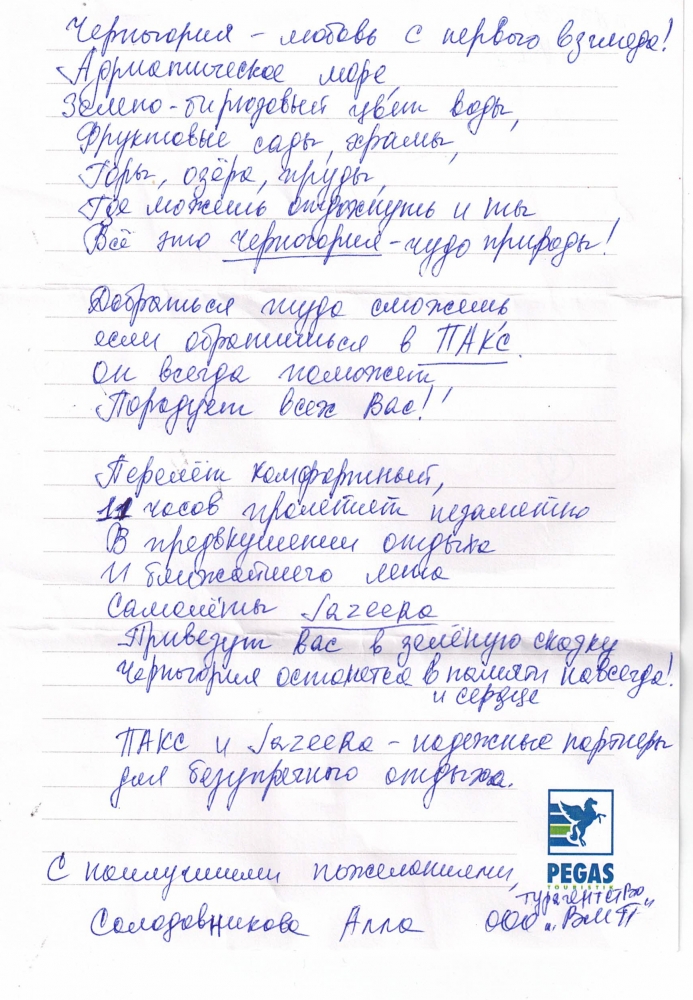 Черногория - любовь с первого взгляда!
Адриатическое море,
Зелено-бирюзовый цвет воды,
Фруктовые сады, храмы,
Горы, озёра, пруды,
Где можешь отдохнуть и ты
Всё это Черногория - чудо природы!
Добраться туда сможешь
если обратишься в ПАКС.
Он всегда поможет,
Порадует всех Вас!
Перелёт комфортный,
11 часов пролетят незаметно
В предвкушении отдыха
И ближайшего лета
Самолёты Jazeera
Привезут Вас в зелёную сказку
Черногория останется в памяти навсегда!
и сердце
ПАКС и Jazeera - надежные партнеры
для безупречного отдыха.
PEGAS
TOURISTIK
С наилучшими пожеланиями,
турагентство
Солодовникова Алла ООО „ВМП"